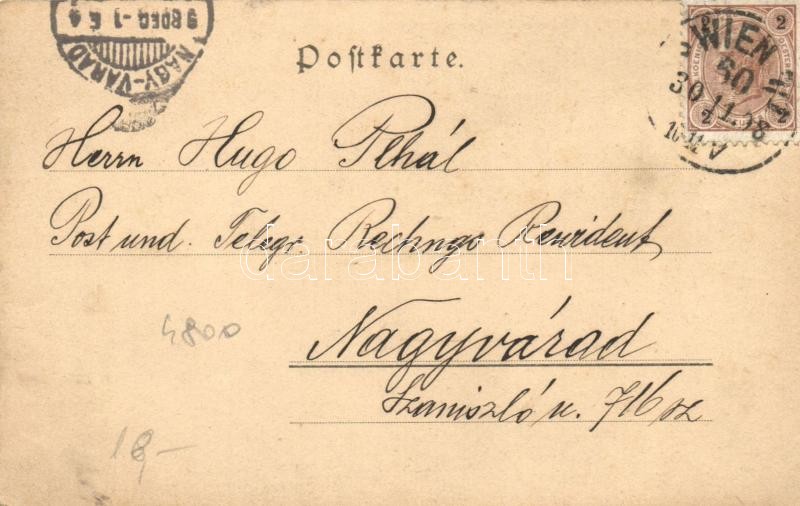 Postkarte.
NAGY-VÁRAD
98 DEC -1
WIEN
30 11 98
2 2
Herrn Hugo Plhál
Post und. Telegr. Rechngs Revident
Nagyvárad
Szaniszló u. 716 sz
4800
18,-
darabanth